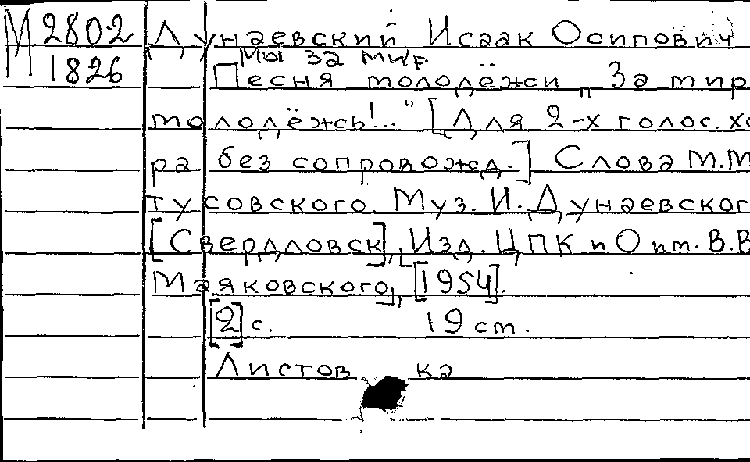 М 2802 Дунаевский Исаак Осипович
1826 мы за мир
Песня молодёжи „За мир
молодёжь!.." [Для 2-х голос. хо
ра без сопровожд.] Слова М.М
тусовского. Муз. И. Дунаевског
[Свердловск], [Изд. ЦПКиО им. В.В
Маяковского], [1954].
[2] с. 19 см.
Листовка